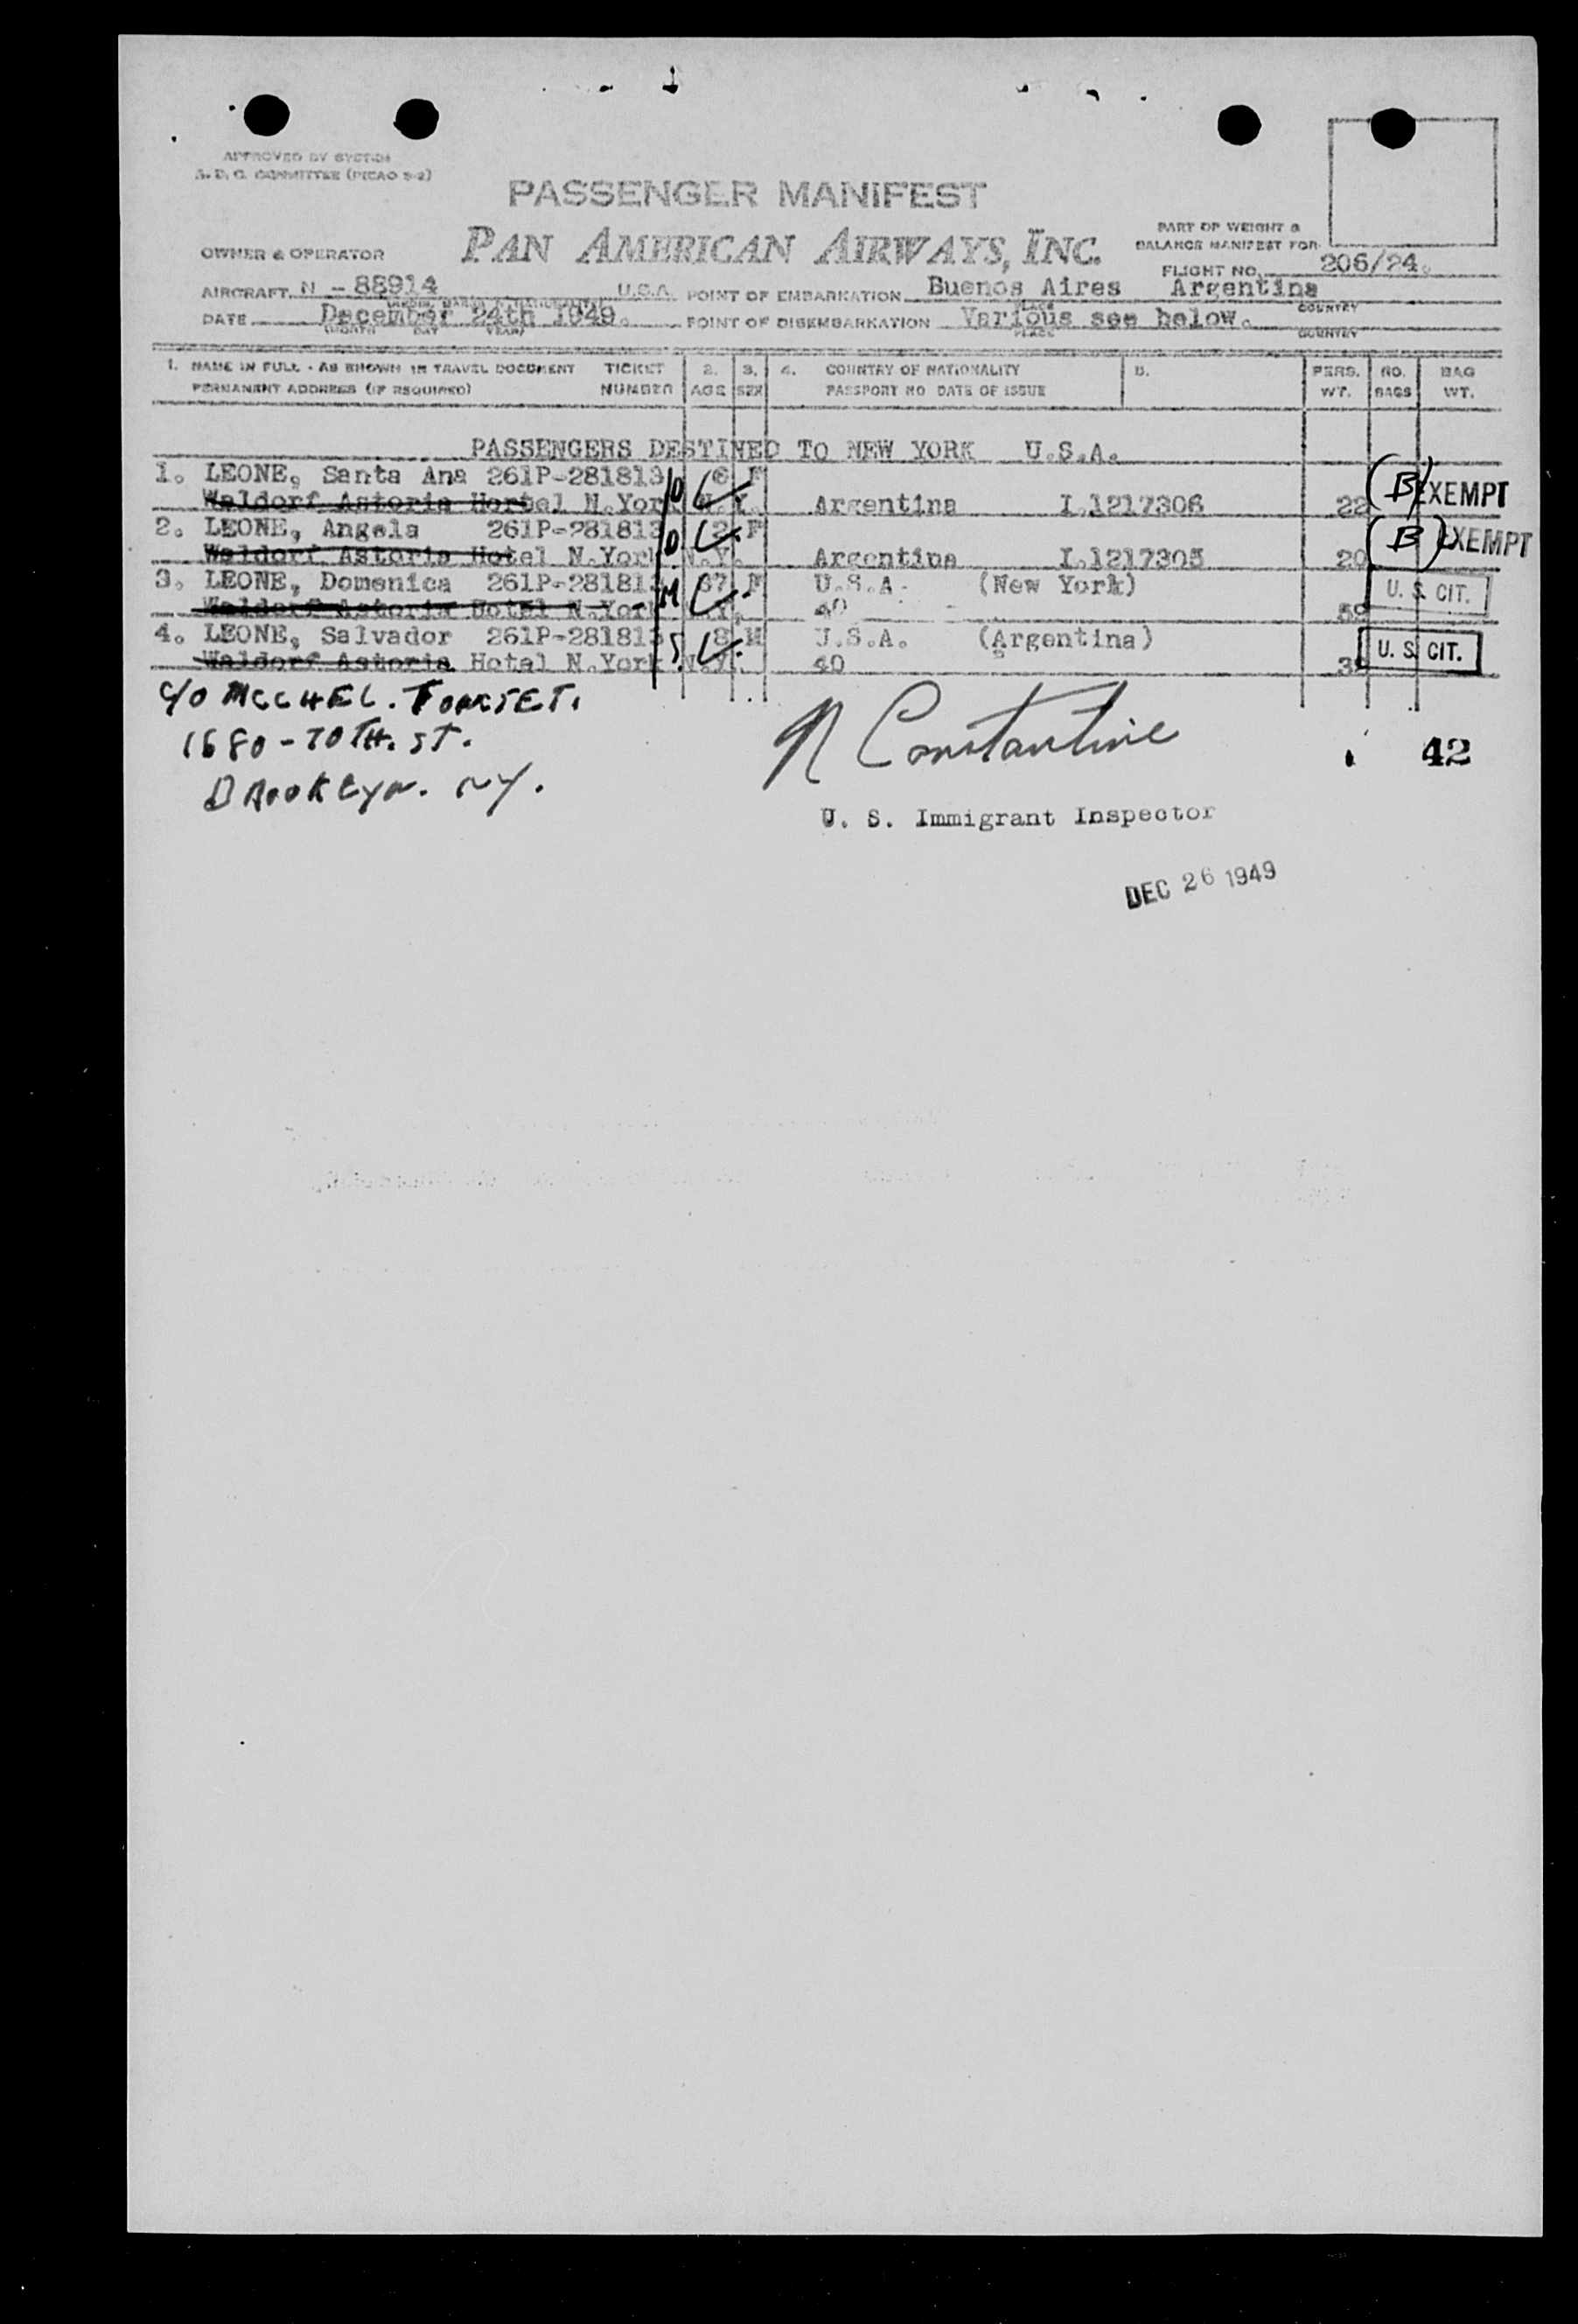 APPROVED BY
S.D.C. COMMITTEE (PICAO 9-2)
PASSENGER MANIFEST
OWNER & OPERATOR PAN AMERICAN AIRWAYS, INC.
PART OF WEIGHT &
BALANCE MANIFEST FOR
FLIGHT NO. 206/24.
AIRCRAFT N - 88914 U.S.A. POINT OF EMBARKATION Buenos Aires Argentina
PLACE COUNTRY
DATE December 24th 1949. POINT OF DISEMBARKATION Various see below.
(MONTH DAY YEAR) PLACE COUNTRY
1. NAME IN FULL - AS SHOWN IN TRAVEL DOCUMENT TICKET 2. 3. 4. COUNTRY OF NATIONALITY 5. PERS. NO. BAG
PERMANENT ADDRESS (IF REQUIRED) NUMBER AGE SEX PASSPORT NO DATE OF ISSUE WT. BAGS WT.
PASSENGERS DESTINED TO NEW YORK U.S.A.
1. LEONE, Santa Ana 261P-281813 6 F
Waldorf Astoria Hortel N.York N.Y. Argentina I.1217306 22 (B) EXEMPT
2. LEONE, Angela 261P-281813 2 F
Waldorf Astoria Hotel N.York N.Y. Argentina I.1217305 20 (B) EXEMPT
3. LEONE, Domenica 261P-281813 37 F U.S.A. (New York) U. S. CIT.
Waldorf Astoria Hotel N.York N.Y. 40
4. LEONE, Salvador 261P-281813 8 M U.S.A. (Argentina)
Waldorf Astoria Hotel N.York N.Y. 40 U. S. CIT.
c/o
1680 - 70TH. ST.
Brooklyn. NY.
N Constantine
42
U. S. Immigrant Inspector
DEC 26 1949